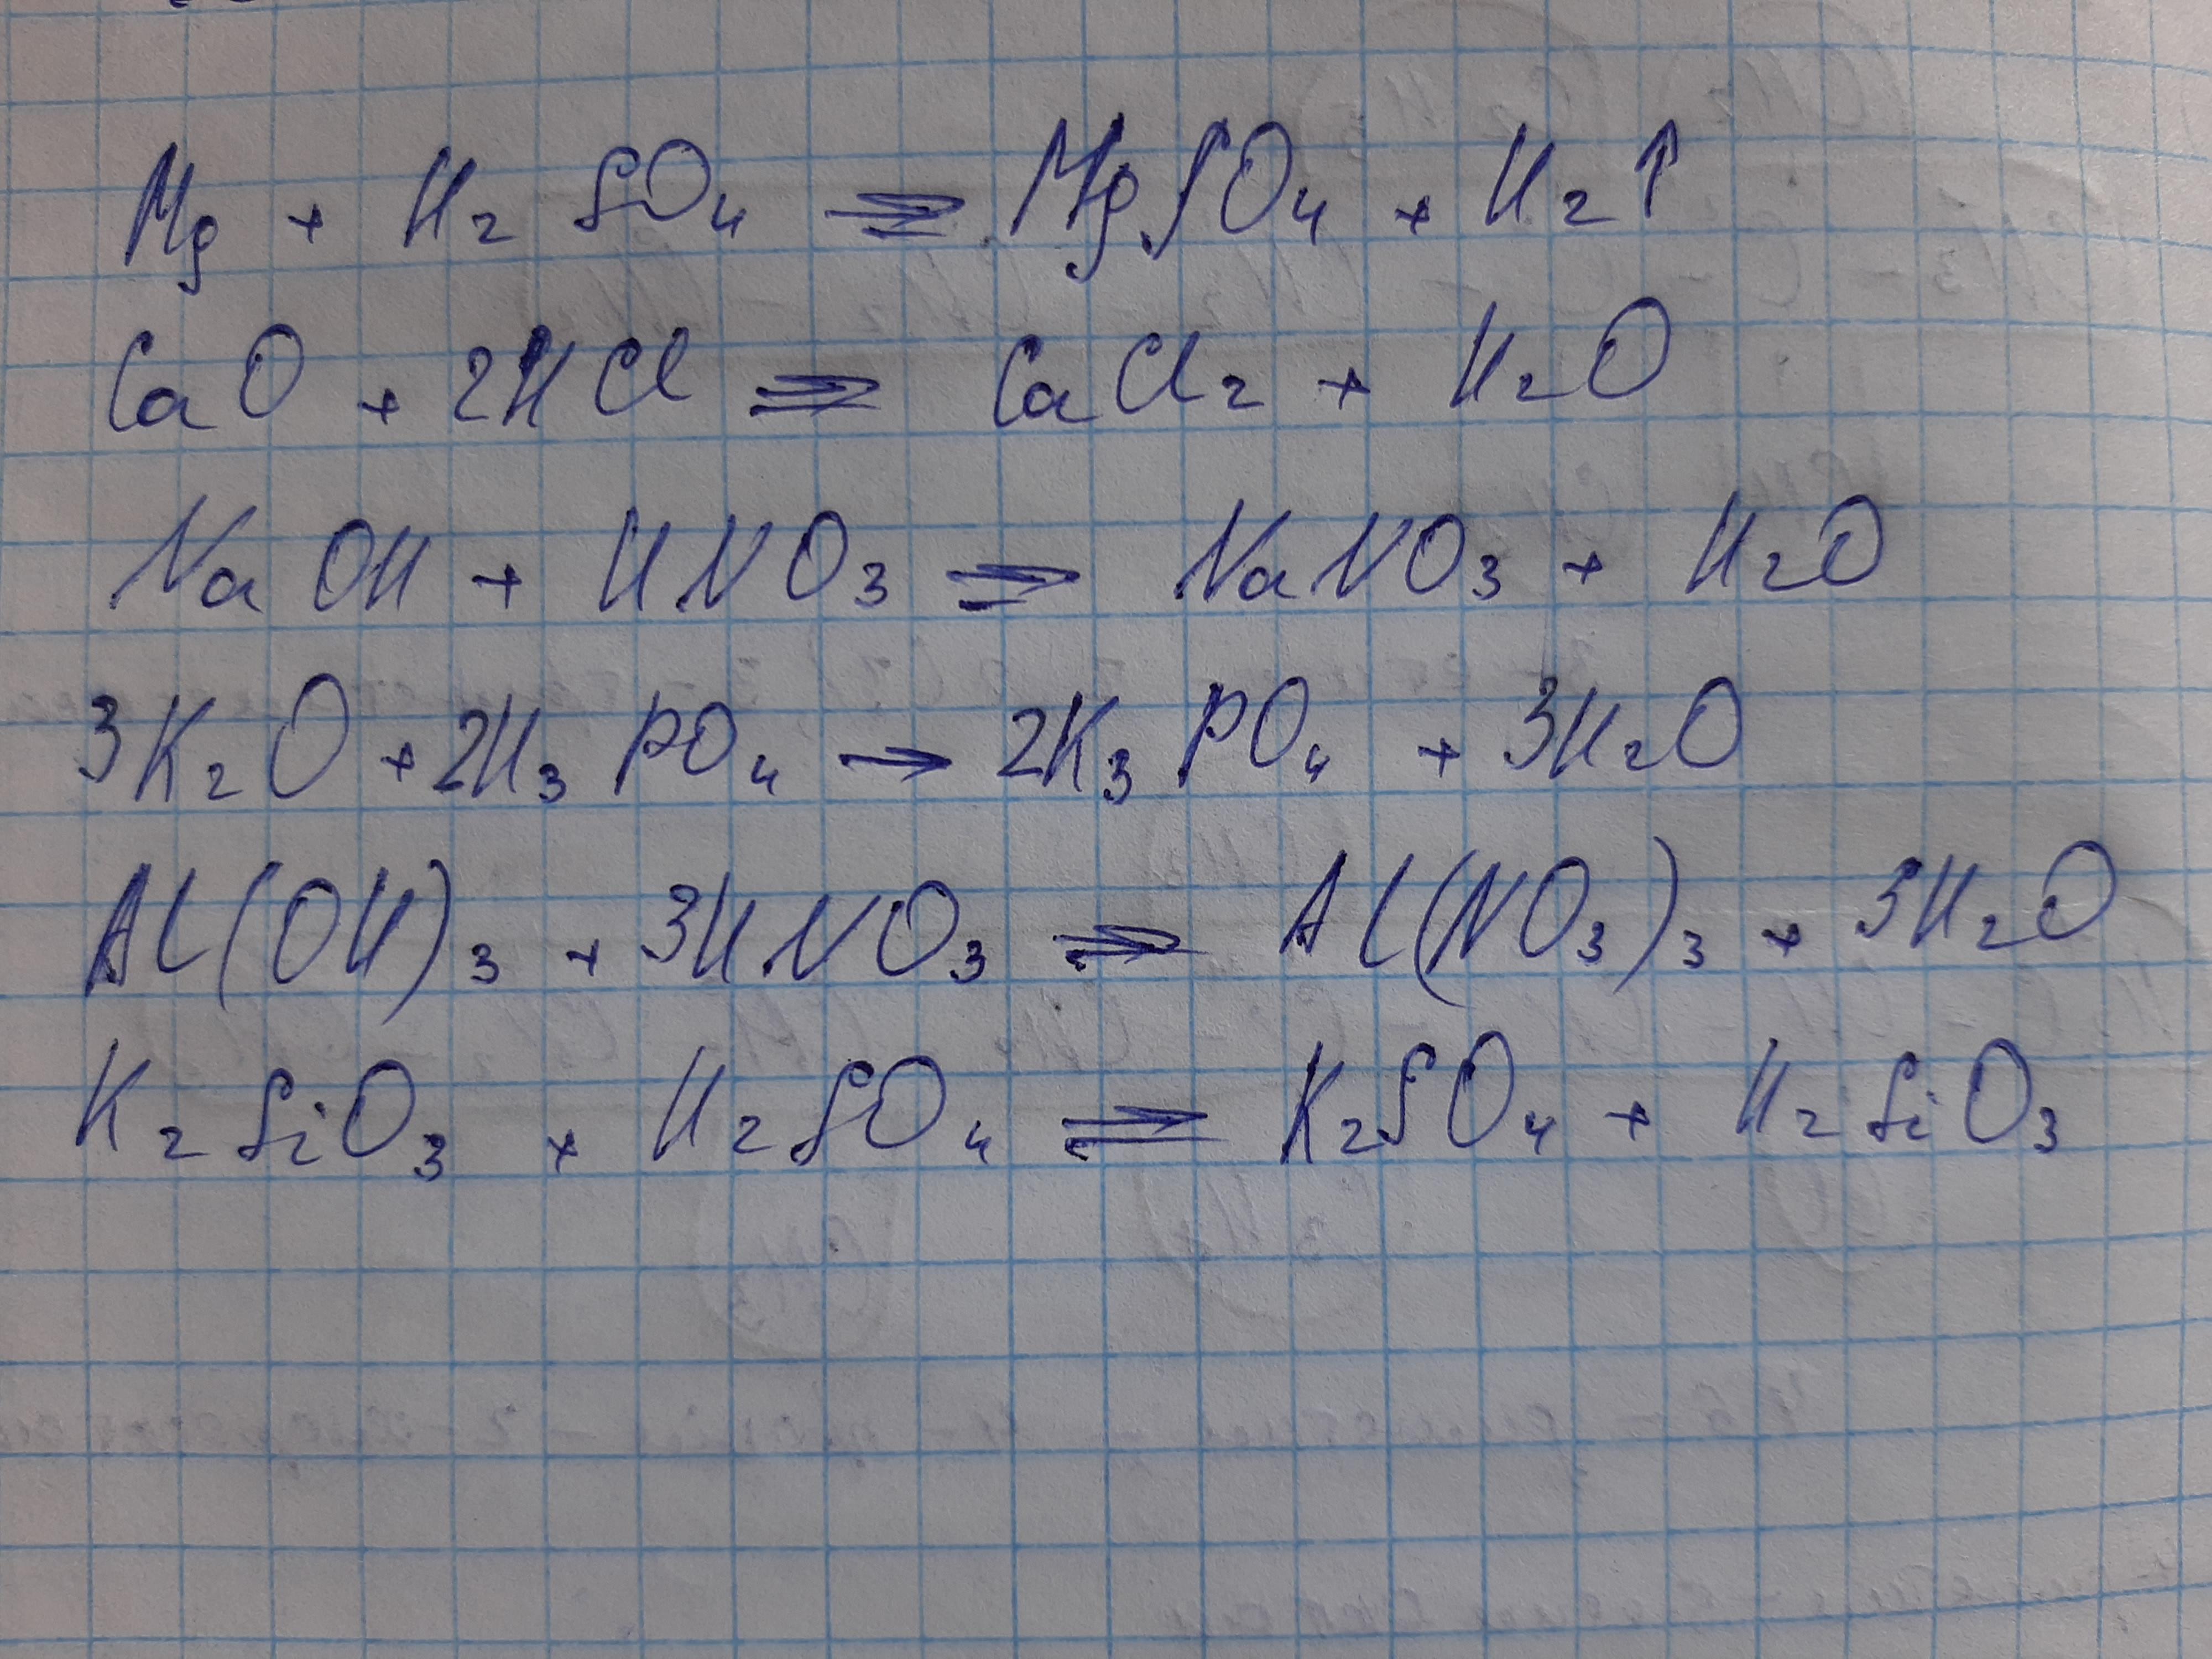 Mg + H₂SO₄ ⇒ MgSO₄ + H₂↑
CaO + 2HCl ⇒ CaCl₂ + H₂O
NaOH + HNO₃ ⇒ NaNO₃ + H₂O
3K₂O + 2H₃PO₄ → 2K₃PO₄ + 3H₂O
Al(OH)₃ + 3HNO₃ ⇒ Al(NO₃)₃ + 3H₂O
K₂SiO₃ + H₂SO₄ ⇒ K₂SO₄ + H₂SiO₃